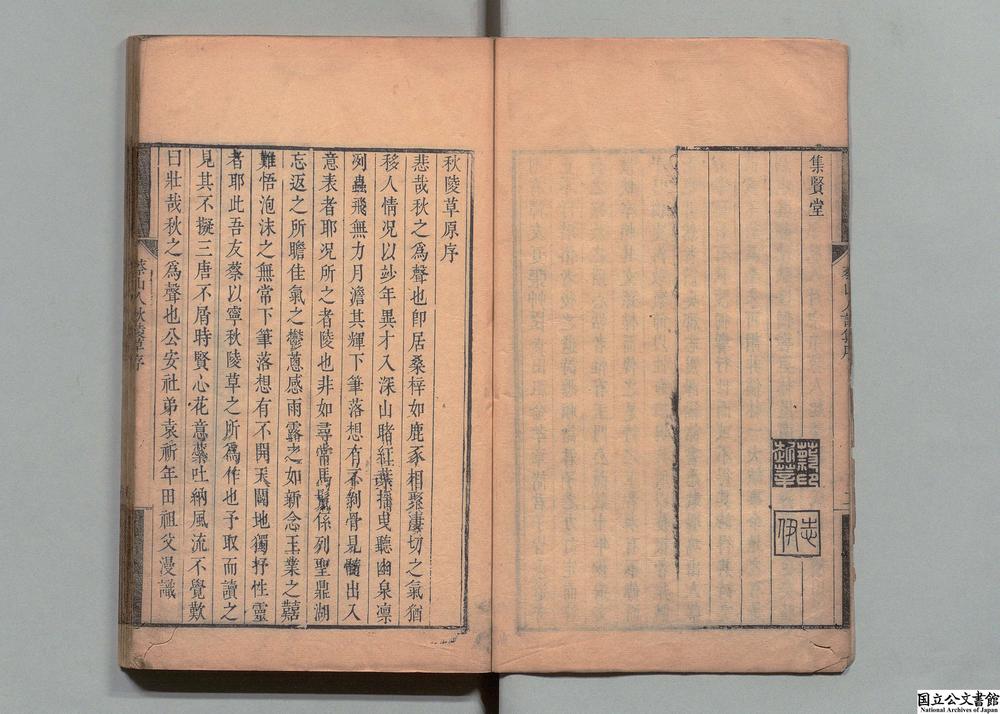 集賢堂
秋陵草原序
悲哉秋之爲聲也卽居桑梓如鹿豕相聚淒切之氣猶
移人情况以玅年異才入深山睹紅葉搖曳聽幽泉凛
冽蟲飛無力月澹其輝下筆落想有不剌骨見髓出入
意表者耶况所之者陵也非如尋常馬鬣係列聖鼎湖
忘返之所瞻佳氣之欝蔥感雨露之如新念王業之囏
難悟泡沫之無常下筆落想有不開天闢地獨抒性靈
者耶此吾友蔡以寧秋陵草之所爲作也予取而讀之
見其不擬三唐不屑時賢心花意蘂吐納風流不覺歎
曰壯哉秋之爲聲也公安社弟袁祈年田祖父漫識
蔡山人秋陵草序
国立公文書館
National Archives of Japan